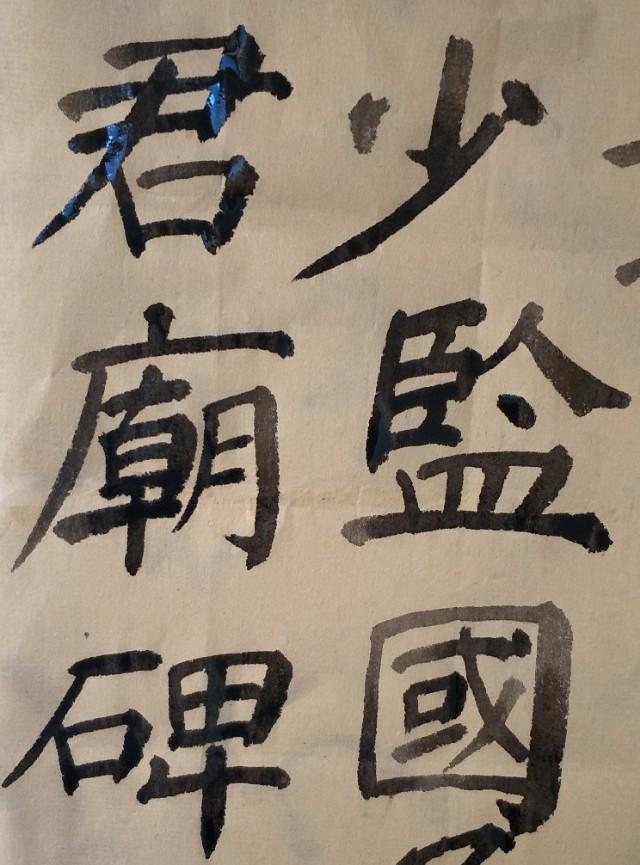 少監國
君廟碑